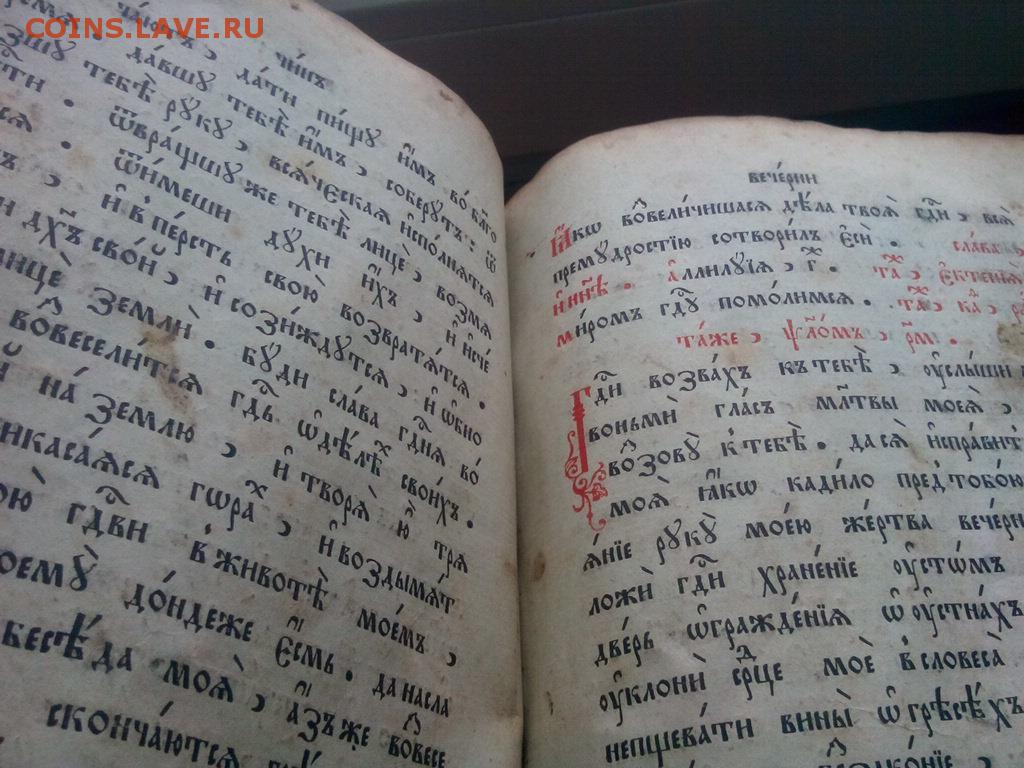 COINS.LAVE.RU
чи́нъ
дати пи́щꙋ и҆̀мъ во̀ бл҃го
да́вшꙋ тебѣ̀ и҆̀мъ , соберꙋтъ :
тебѣ̀ рꙋкꙋ , всѧ́ческаѧ и҆спо́лнѧтсѧ
ѿвра́щшꙋ же тебѣ̀ лицѐ , возмѧ
ѿи́меши дꙋ́хи и҆́хъ , и҆ и҆сче́
и҆ в̾ пе́рсть свою̀ возвратѧ́тсѧ .
дх҃ъ сво́й , и҆ сози́ждꙋтсѧ , и҆ ѡ҆бно
лицѐ землѝ . бꙋ́ди сла́ва гдⷭ҇нѧ во́
во҆звесели́тсѧ гдⷭ҇ь ѡ҆ дѣ́лѣⷯ свои́хъ .
на́ землю , и҆ творѧ̀ ю҆̀ трѧ
прикаса́ѧсѧ гора́ⷯ , и҆ воздымѧ́т
гдⷭ҇ви в̾ животѣ̀ мое́мъ ,
моемꙋ̀ до́ндеже є҆́смь . да насла
бесѣ́да моѧ̀ , а҆́зъ же во҆звесе
сконча́ютсѧ
вече́рни
Ꙗ҆́кѡ во҆звели́чишасѧ дѣ́ла твоѧ̀ гдⷭ҇и , всѧ̀
премꙋ́дростїю сотвори́лъ є҆сѝ . сла́ва ,
и҆ нн҃ѣ . а҆ллилꙋ́їѧ , г҃ . таⷤ , є҆ктенїѧ̀
ми́ромъ гдⷭ҇ꙋ помо́лимсѧ . таⷤ , каⷴ ,
та́же , ѱало́мъ , рм҃ .
Гдⷭ҇и возва́хъ к тебѣ̀ , ᲂу҆слы́ши
вонмѝ гла́съ мл҃твы моеѧ̀ ,
во҆зовꙋ̀ к̾ тебѣ̀ . да сѧ̀ и҆спра́вит
моѧ̀ ꙗ҆́кѡ кади́ло пред̾ тобо́ю
ѧ́нїе рꙋкꙋ̀ мое́ю же́ртва вече́рн
ложѝ гдⷭ҇и хране́нїе ᲂу҆стѡ́мъ
две́рь ѡ҆гражде́нїѧ ѡ҆ ᲂу҆стна́хъ
ᲂу҆клонѝ срⷣце моѐ в̾ словеса̀
непщева́ти вины̀ ѡ҆ грѣсѣ́хъ